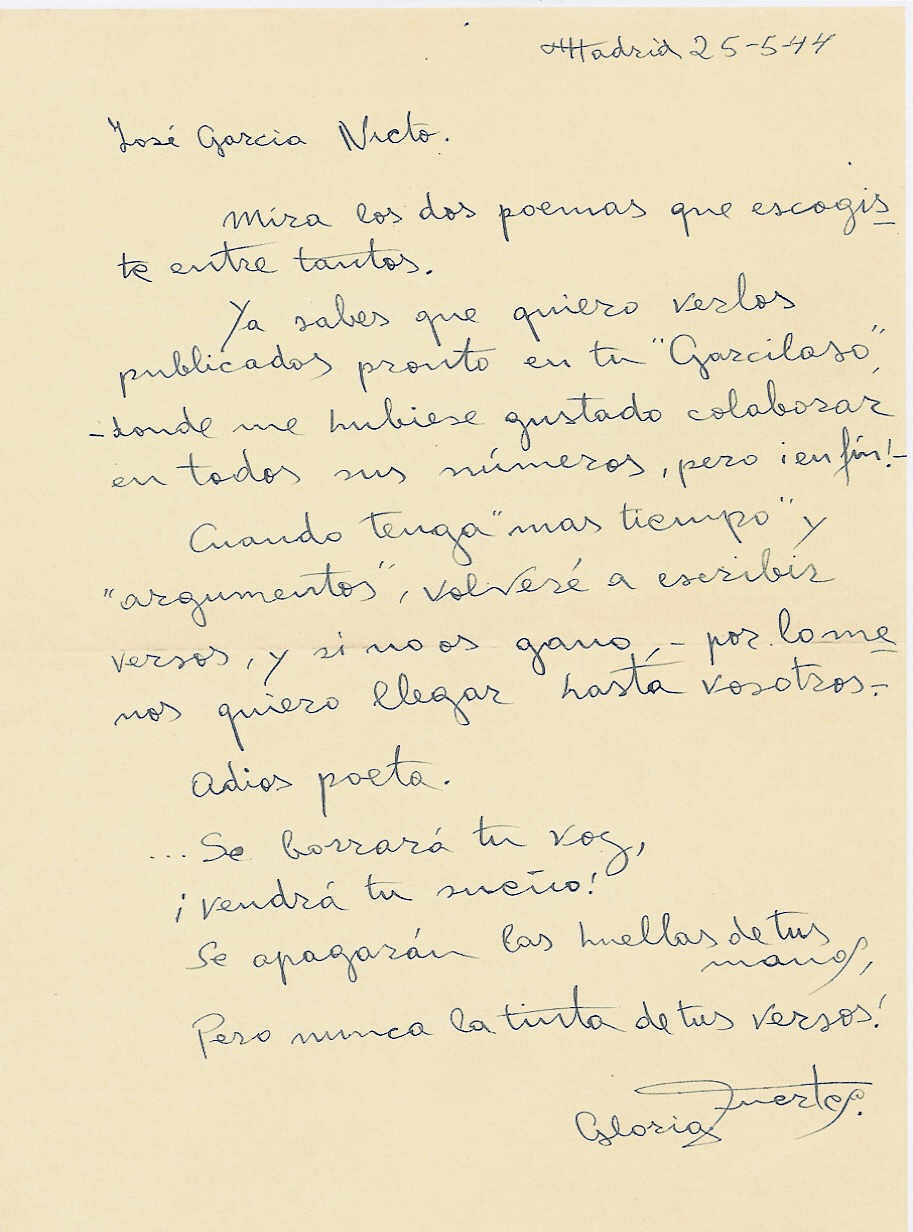 Madrid 25-5-44
José Garcia Nieto.
Mira los dos poemas que escogis
te entre tantos.
Ya sabes que quiero verlos
publicados pronto en tu "Garcilaso",
-donde me hubiese gustado colaborar
en todos sus números, pero ¡en fín!-
Cuando tenga "mas tiempo" y
"argumentos", volveré a escribir
versos, y si no os gano,- por lo me
nos quiero llegar hasta vosotros.-
Adios poeta.
... Se borrará tu voz,
¡vendrá tu sueño!
Se apagarán las huellas de tus
manos,
Pero nunca la tinta de tus versos!
Gloria Fuertes.